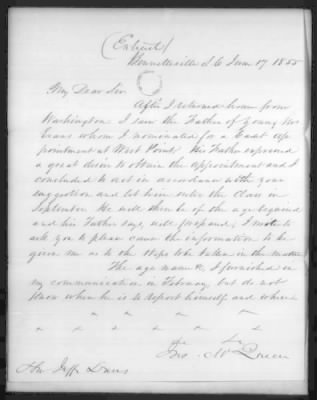 (Extract)
Bennettsville S.C June 17 1855
My Dear Sir
After I returned home from
Washington I saw the Father of Young Mr
Evans whom I nominated for a Cadet Ap
pointment at West Point. His Father expressed
a great desire to obtain the appointment and I
concluded to act in accordance with your
suggestion and let him enter the Class in
September. He will then be of the age required
and his Father says, will prepared, I write to
ask you to please cause the information to be
given me as to the steps to be taken in the matter
The age name &c, I furnished in
my communication in February, but do not
know when he is to report himself and where
Jno. McQueen
Hon Jeffn Davis